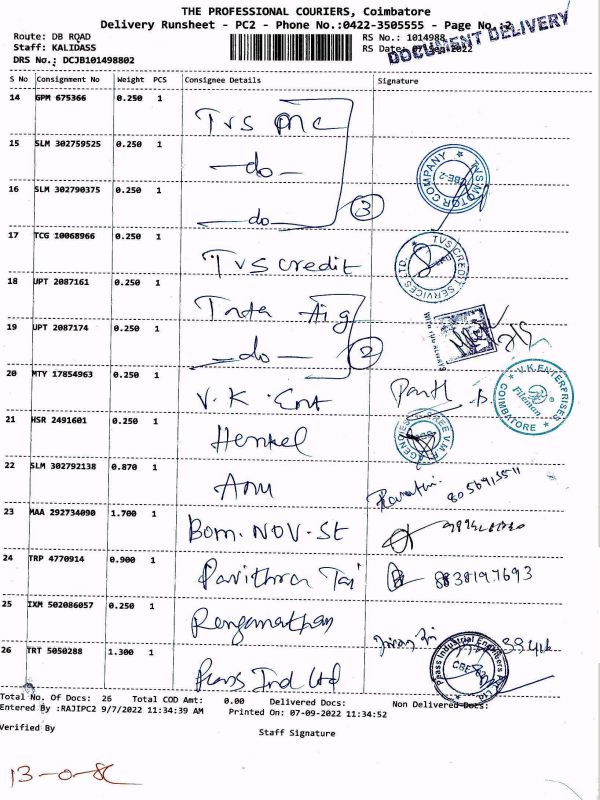 THE PROFESSIONAL COURIERS, Coimbatore
Delivery Runsheet - PC2 - Phone No.:0422-3505555 - Page No.:2
DOCUMENT DELIVERY
Route: DB ROAD RS No.: 1014988
Staff: KALIDASS RS Date: 07 Sep 2022
DRS No.: DCJB101498802
S No Consignment No Weight PCS Consignee Details Signature
14 GPM 675366 0.250 1 TVS MC
15 SLM 302759525 0.250 1 —do—
TVS MOTOR COMPANY CBE-2
16 SLM 302790375 0.250 1 —do— 3
17 TCG 10068966 0.250 1 TVS credit
TVS CREDIT SERVICES LTD.
18 UPT 2087161 0.250 1 Tata Aig
WITH YOU ALWAYS
19 UPT 2087174 0.250 1 —do— 2
20 MTY 17854963 0.250 1 V.K. Ent
V.K. ENTERPRISES COIMBATORE
21 HSR 2491601 0.250 1 Henkel
AGENCIES
22 SLM 302792138 0.870 1 Anu
23 MAA 292734090 1.700 1 Bom. NOV. St
24 TRP 4770914 0.900 1 Pavithra Tai 8838197693
25 IXM 502086057 0.250 1 Renganathan
26 TRT 5050288 1.300 1 Press Ind Ltd
Press Industrial Engineers Pvt Ltd.
Total No. Of Docs: 26 Total COD Amt: 0.00 Delivered Docs: Non Delivered Docs:
Entered By :RAJIPC2 9/7/2022 11:34:39 AM Printed On: 07-09-2022 11:34:52
Verified By Staff Signature